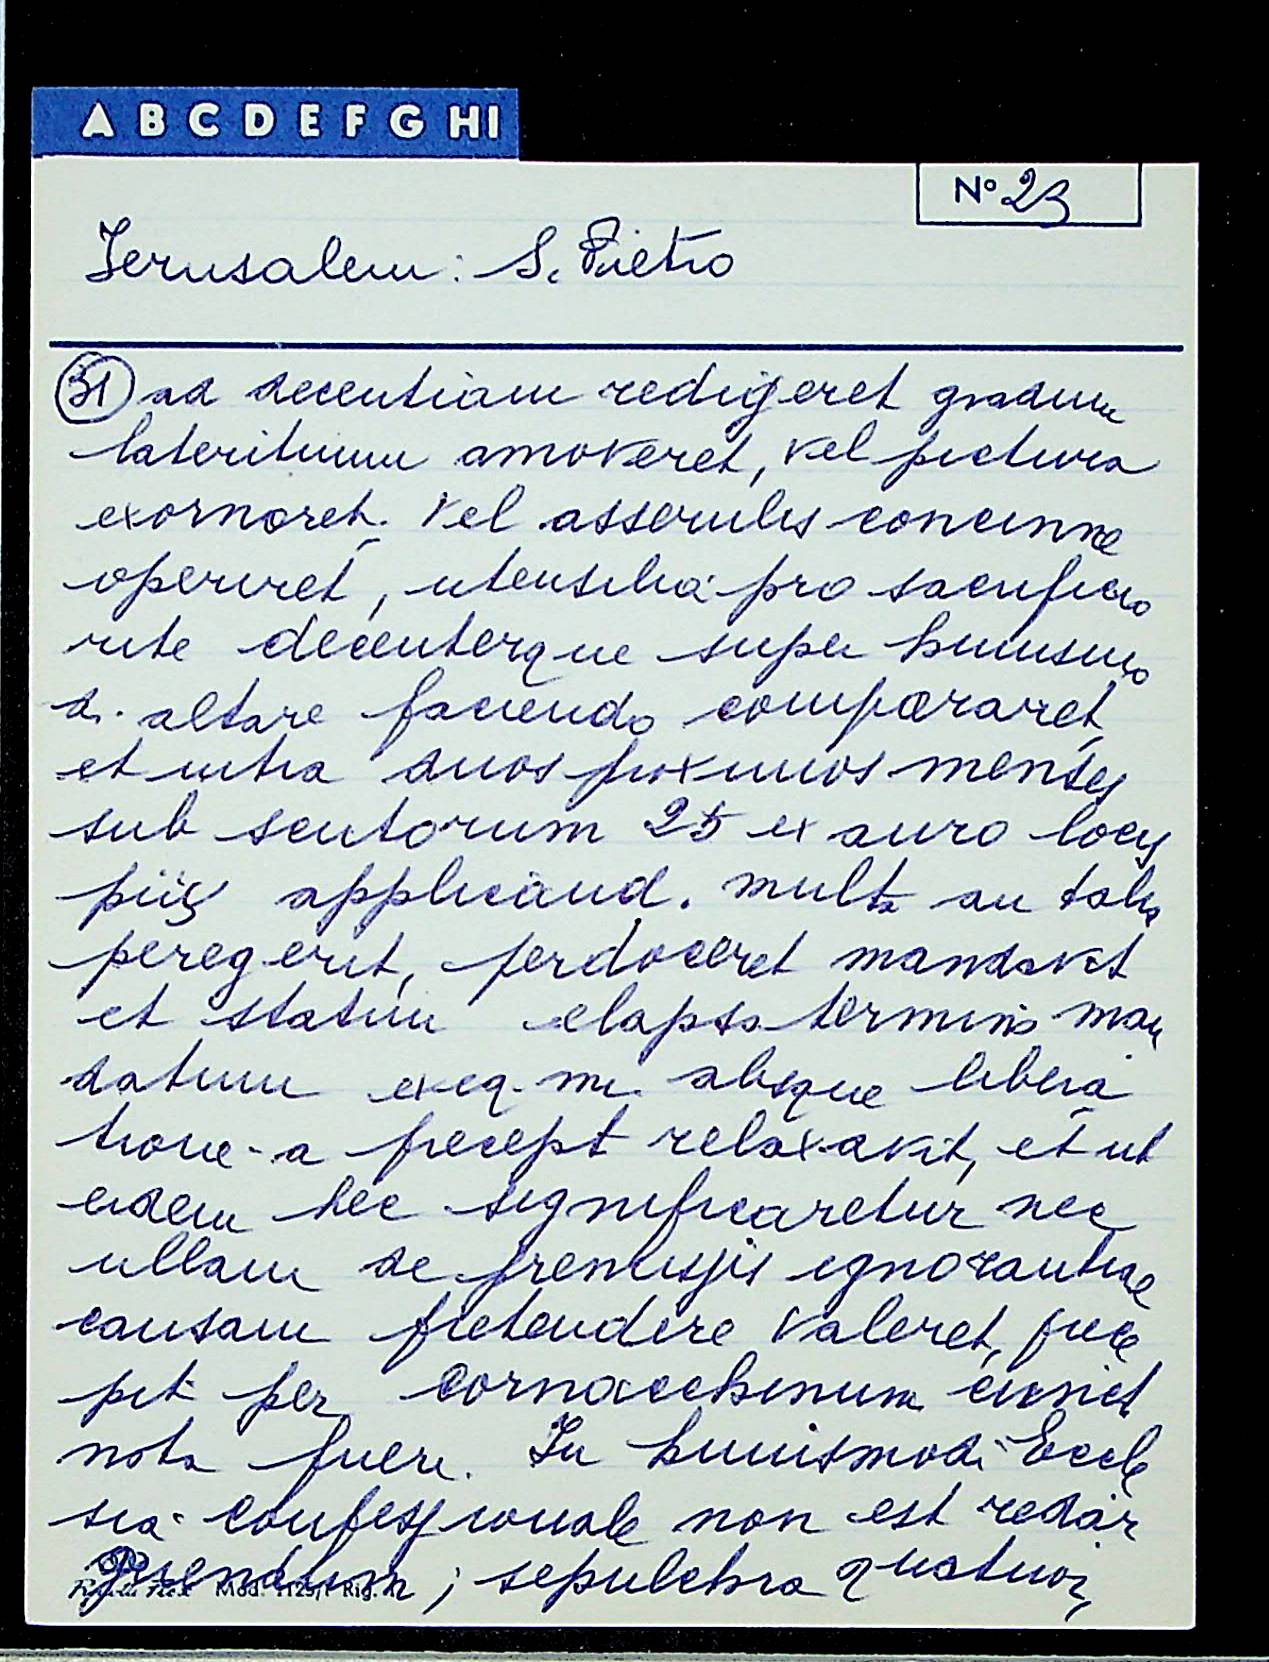 A B C D E F G H I
Nº 23
Jerusalem: S. Pietro
31 ad decentiam redigeret gradum
lateritium amoveret, vel pictura
exornaret. Vel asserulis concinne
operiret, utensilia pro sacrificio
rite decenterque super huiusmo
d. altare faciendo compararet
et intra duos proximos menses
sub scutorum 25 ex auro locys
piis applicand. multa an talia
peregerit, perdoceret mandavit
et statim elapso termino man
datum exeq. m. absque libera
tione a precept relaxavit, et ut
eidem hec significaretur nec
ullam de premissis ignorantiae
causam pretendere valeret, prece
pit per Cornacchinum
nota fuere. In huiusmodi Eccle
sia confessionale non est redar
guendum; sepulchra quatuor,
Mod. 1125/1 Rig.